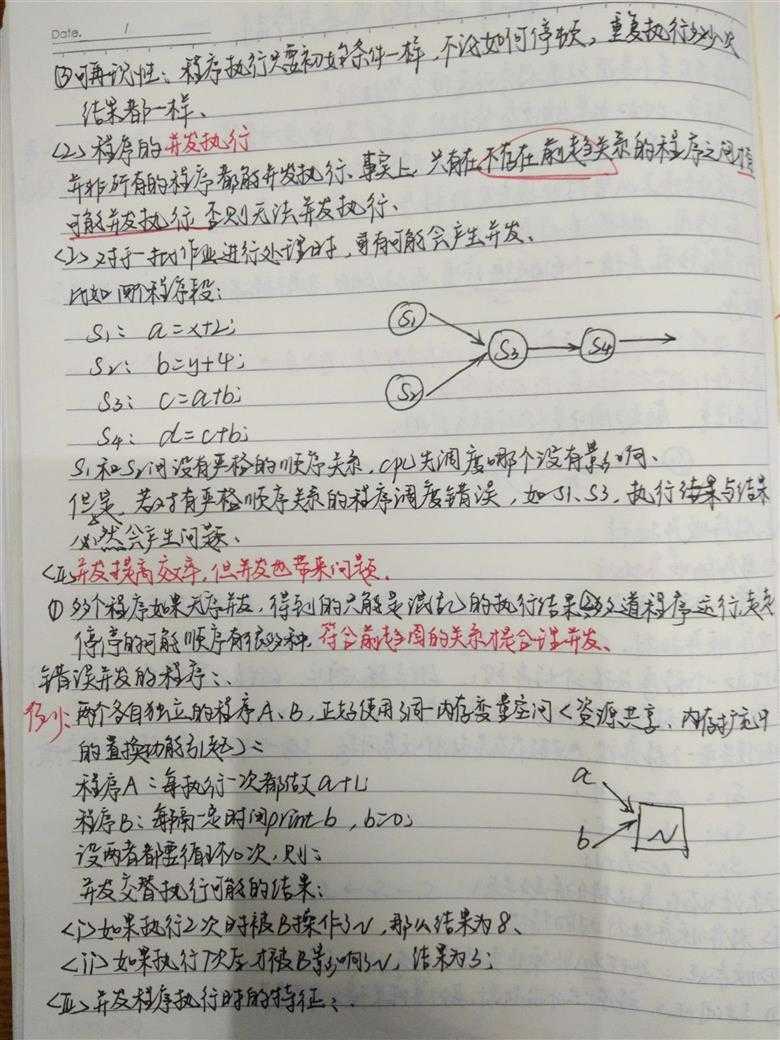 Date. 1
③可再现性：程序执行只要初始条件一样，不论如何停顿，重复执行多少次
结果都一样、
<2> 程序的并发执行
并非所有的程序都能并发执行、事实上，只有在不存在前趋关系的程序之间才
可能并发执行，否则无法并发执行、
<I> 对于一批作业进行处理时，更有可能会产生并发、
比如四个程序段：
S1： a=x+2;
S2： b=y+4;
S3： c=a+b;
S4： d=c+b;
S1
S2
S3
S4
S1和S2间没有严格的顺序关系，CPU先调度哪个没有影响、
但是，若对有严格顺序关系的程序调度错误，如S1、S3，执行结果与结果
必然会产生问题、
<II> 并发提高效率，但并发也带来问题.
① 多个程序如果无序并发，得到的只能是混乱的执行结果 ②多道程序运行走走
停停的可能顺序有很多种，符合前趋图的关系才是合理并发、
错误并发的程序：、
例1：两个各自独立的程序A、B，正好使用了同一内存变量空间<资源共享、内存扩充中
的置换功能引起>：
程序A：每执行一次都做 a+1;
程序B：每隔一定时间print b，b=0;
设两者都要循环10次，则：
并发交替执行可能的结果：
a
b
N
<i> 如果执行2次时被B操作了N，那么结果为8、
<ii> 如果执行7次后才被B影响了N，结果为3;
<III> 并发程序执行时的特征：、